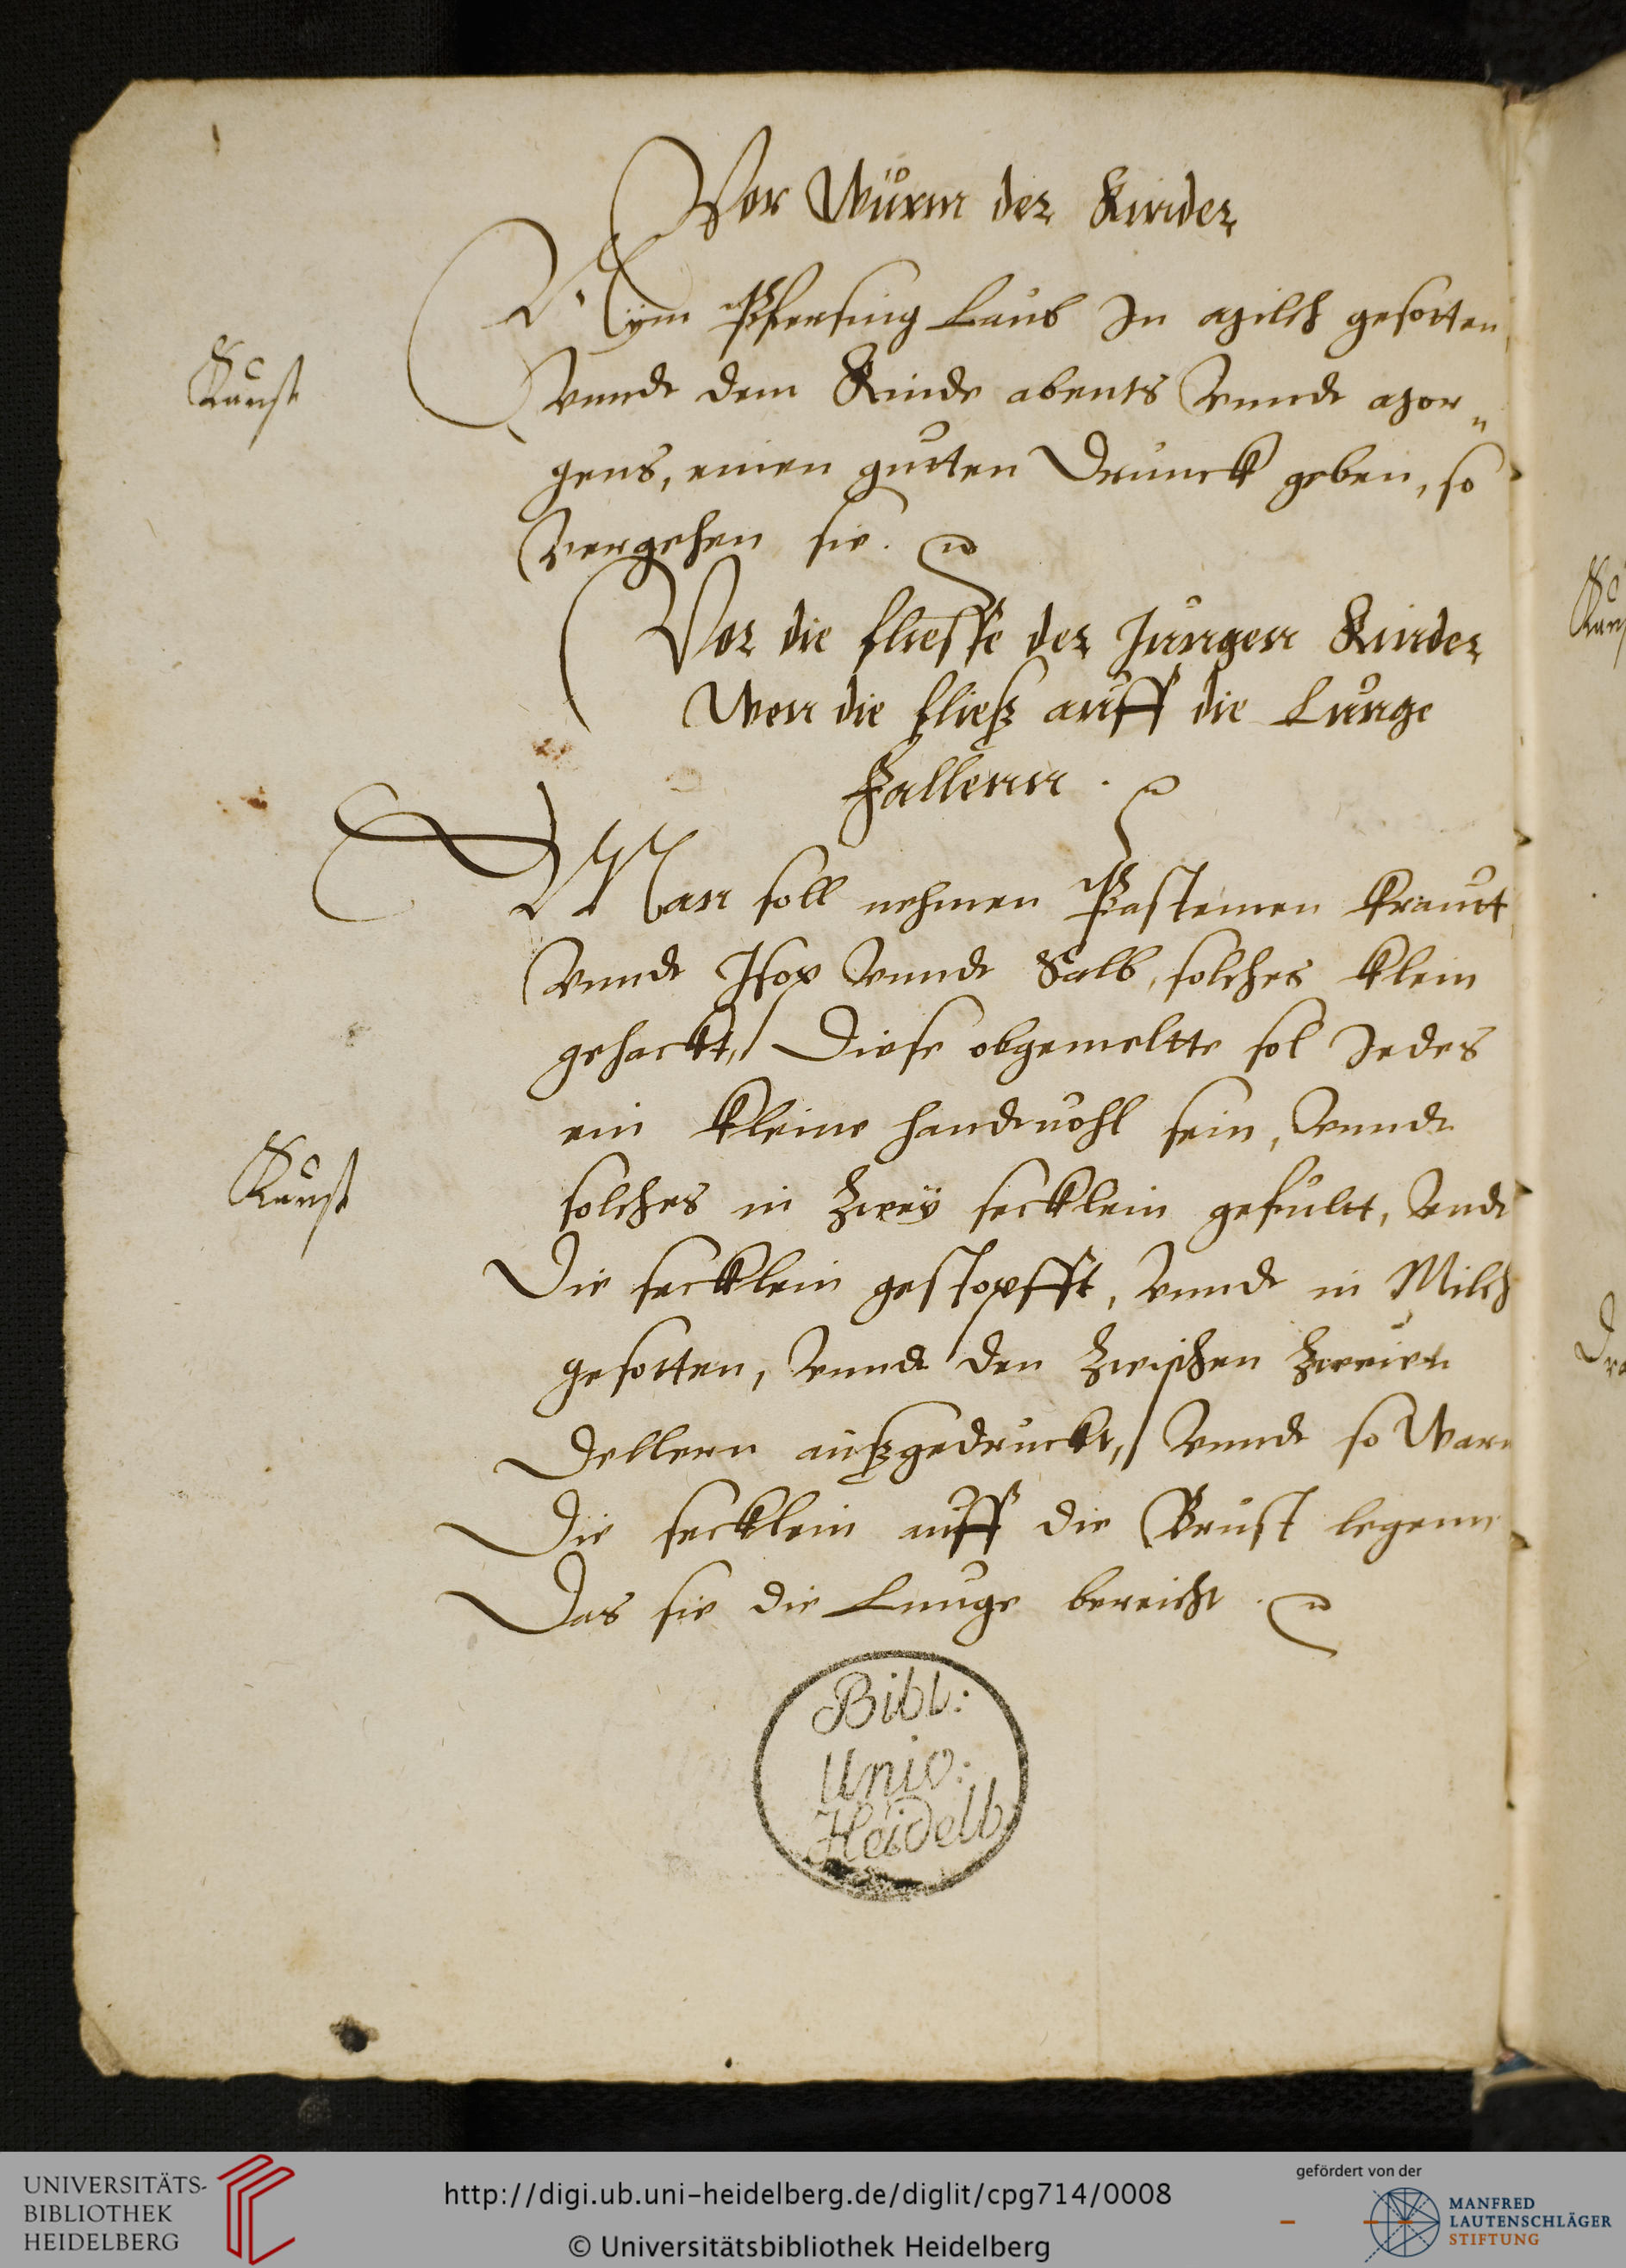 Vor Würm der Kinder
Nÿm Pfersing Laub In Milch gesotten
Kunst
vnndt dem Kinde abents vnndt Mor„
gens, einen gutten Drunck geben, so
vergehen sie.
Vor die fliesse der Jungen Kinder
Wen die fließ auff die Lunge
Fallenn.
Man soll nehmen Pastemen kraut
vnndt Isop vnndt Salb, solches klein
gehackt, Diese obgemeltte sol Jedes
ein kleine handtuohl sein, vnndt
Kunst
solches in Zweÿ secklein gefullt, vndt
Die secklein gestopfft, vnndt in Milch
gesotten, vnndt den Zwischen Zweien
Dellern außgedruckt, vnndt so Warm
Die secklein auff die Brust legenn
Das sie die Lunge bereicht.
Bibl:
Univ:
Heidelb
UNIVERSITÄTS-
BIBLIOTHEK
HEIDELBERG
http://digi.ub.uni-heidelberg.de/diglit/cpg714/0008
© Universitätsbibliothek Heidelberg
gefördert von der
MANFRED
LAUTENSCHLÄGER
STIFTUNG